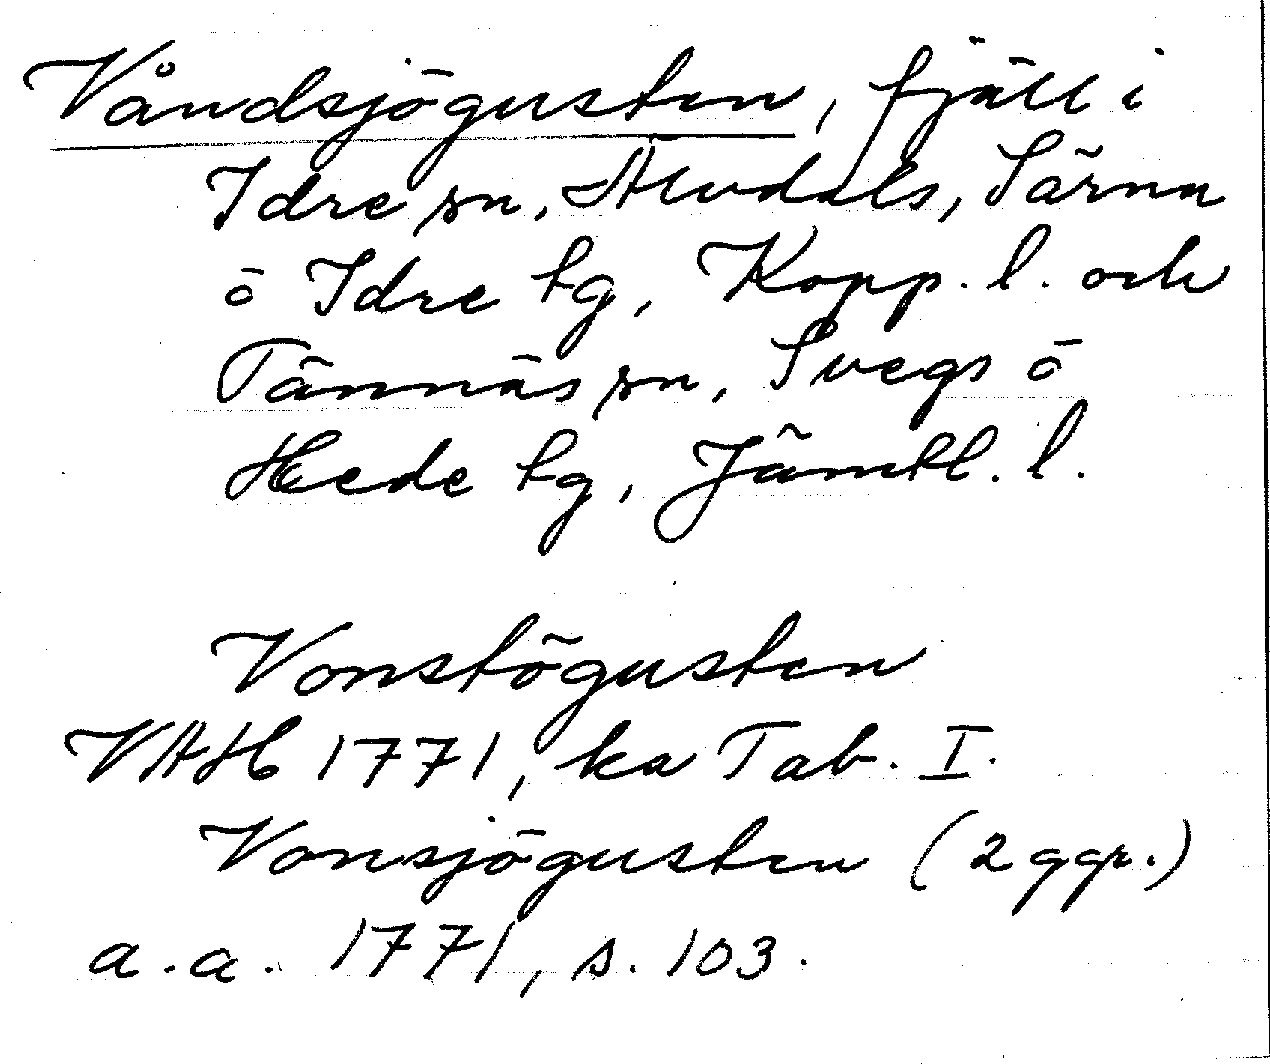 Våndsjögusten, fjäll i
Idre sn, Älvdals, Särna
o Idre tg, Kopp. l. och
Tännäs sn, Svegs o
Hede tg, Jämtl. l.
Vonstögusten
VAH 1771, ka Tab. I.
Vonsjögusten (2 ggr.)
a.a. 1771, s. 103.